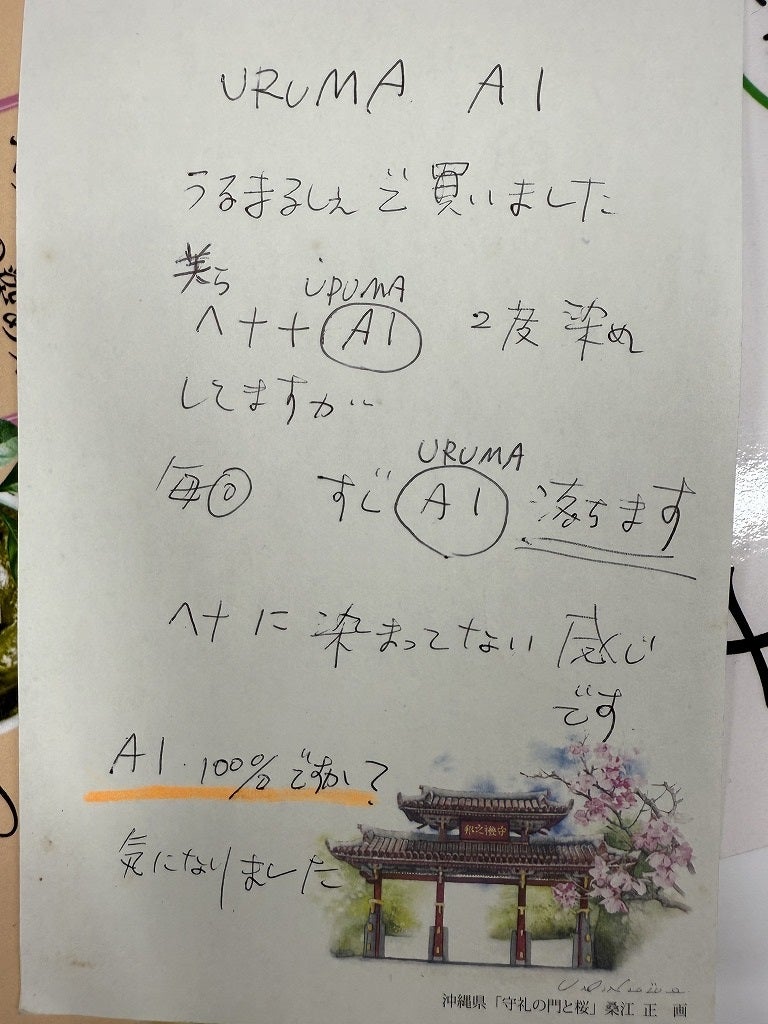 URUMA AI
うるまるしぇで買いました
美ら URUMA
ヘナ+AI 2度染め
してますが…
URUMA
毎回 すぐAI落ちます
ヘナに染まってない感じ
です
AI 100%ですか?
気になりました
守禮之邦
沖縄県「守礼の門と桜」桑江 正 画